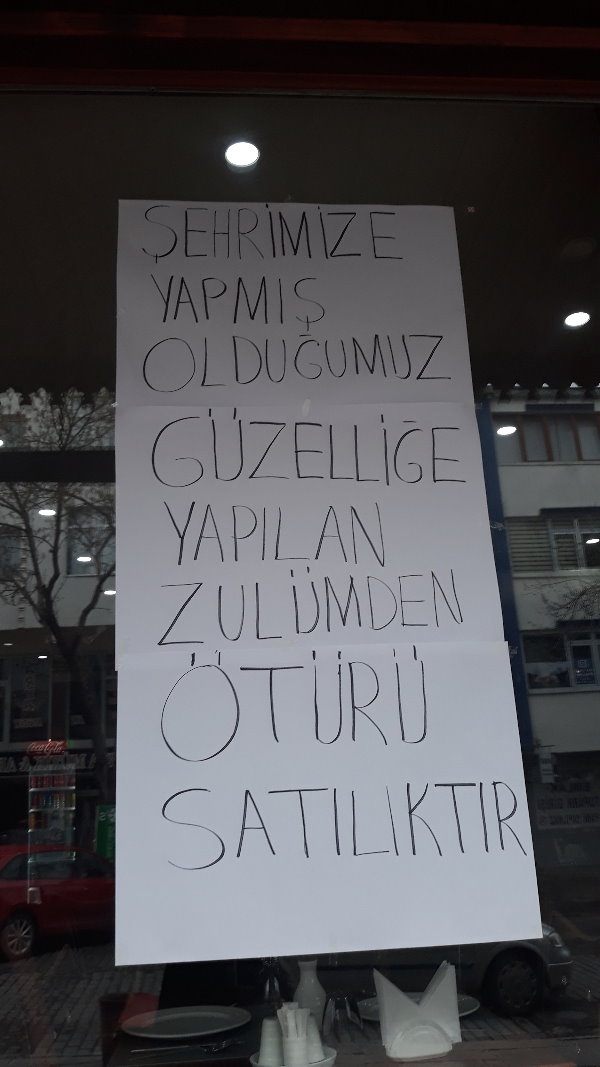 ŞEHRİMİZE
YAPMIŞ
OLDUĞUMUZ
GÜZELLİĞE
YAPILAN
ZULÜMDEN
ÖTÜRÜ
SATILIKTIR
Coca-Cola